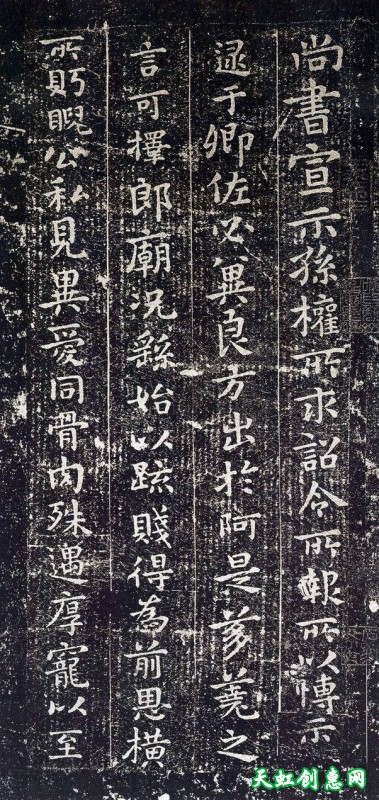 尚書宣示孫權所求詔令所報所以博示
逮于卿佐必冀良方出於阿是芻蕘之
言可擇郎廟況繇始以疏賤得為前恩橫
所眄睨公私見異愛同骨肉殊遇厚寵以至
天虹创惠网